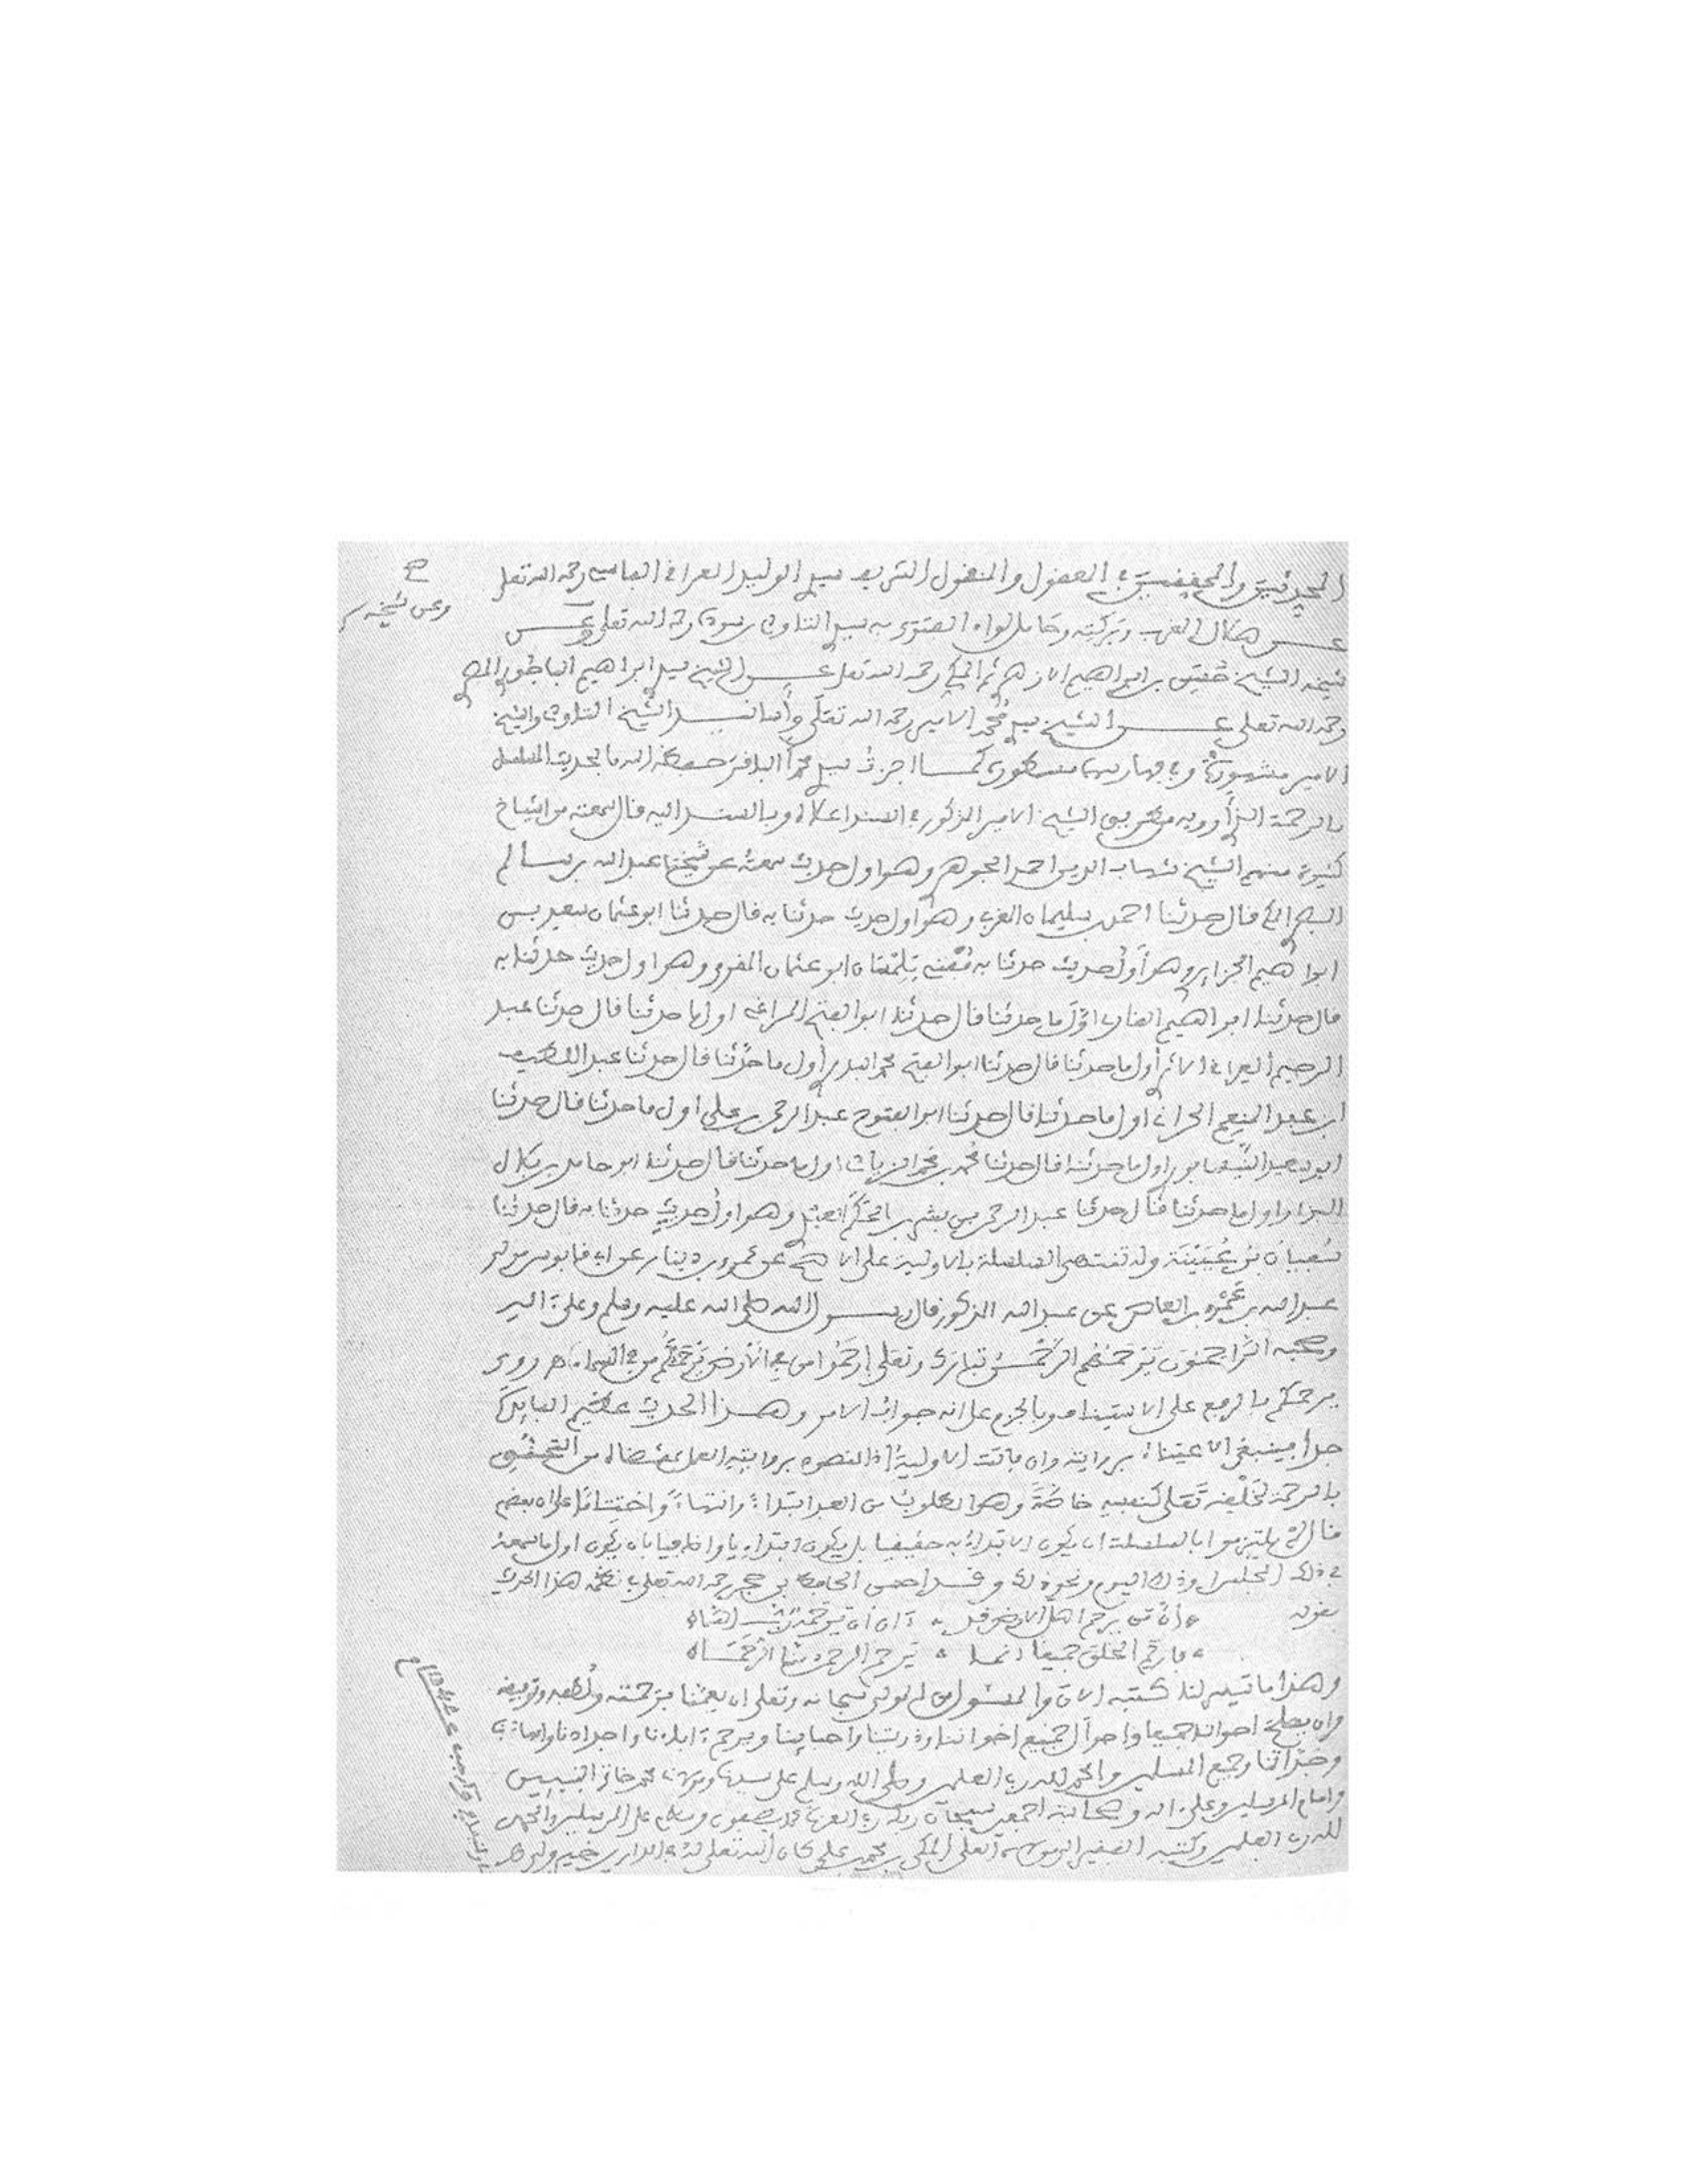 المحدثين والمحققين في المعقول والمنقول الشريف سيدي الوليد العراقي الفاسي رحمه الله تعلى
وعن شيخه
عن هلال المغرب وبركته وحامل لواء الفتوى به سيدي التاودي بن سودة رحمه الله تعلى وعن
شيخه الشيخ بن ابراهيم الازهري ثم المكي رحمه الله تعلى عن الشيخ سيدي ابراهيم الباجوري المصري
رحمه الله تعلى عن الشيخ سيدي محمد الامير رحمه الله تعلى وأسانيد الشيخ التاودي والشيخ
الامير مشهورة وفي فهارسهما مسطورة كما اجزت سيدي محمدا الباقر حفظه الله بالحديث المسلسل
بالرحمة الذي أرويه من طريق الشيخ الامير المذكور في السند اعلاه وبالسند اليه قال سمعته من اشياخ
كثيرة منهم الشيخ شهاب الدين احمد الجوهري وهو اول حديث سمعته عن شيخنا عبد الله بن سالم
البصري قال حدثنا احمد بن سليمان المغربي وهو اول حديث حدثنا به قال حدثنا ابو عثمان سعيد بن
ابراهيم الجزايري وهو أول حديث حدثنا به بتلمسان ابو عثمان المقري وهو اول حديث حدثنا به
قال حدثنا ابراهيم التازي اول ما حدثنا قال حدثنا ابو الفتح المراغي اول ما حدثنا قال حدثنا عبد
الرحيم العراقي أول ما حدثنا قال حدثنا ابو الفتح محمد البدري أول ما حدثنا قال حدثنا عبد اللطيف
ابن عبد المنعم الحراني اول ما حدثنا قال حدثنا ابو الفتوح عبد الرحمن بن علي اول ما حدثنا قال حدثنا
ابو سعيد النيسابوري اول ما حدثنا قال حدثنا محمد بن محمد الزيادي اول ما حدثنا قال حدثنا ابو حامد بن بلال
البزاز اول ما حدثنا قال حدثنا عبد الرحمن بن بشر بن الحكم العبدي وهو اول حديث حدثنا به قال حدثنا
سفيان بن عيينة وله تنتهي السلسلة بالاولية على الاصح عن عمرو بن دينار عن ابي قابوس مولى
عبد الله بن عمرو بن العاص عن عبد الله المذكور قال رسول الله صلى الله عليه وسلم وعلى آله
وصحبه الراحمون يرحمهم الرحمن تبارك وتعلى ارحموا من في الأرض يرحمكم من في السماء اهـ روي
يرحمكم بالرفع على الاستيناف وبالجزم على انه جواب الامر وهذا الحديث عظيم الفايدة
جدا فينبغي الاعتناء بروايته وان فاتت الاولية اذ المقصود بروايته العمل بمقتضاه من التخلق
بالرحمة لخلقه تعلى كنفسه خاصة وهو المطلوب من العبد ابتداء وانتهاء واختتاما على ان بعضهم
قال لم يلتزموا بالسلسلة ان يكون الابتداء به حقيقيا بل يكون ابتداييا واضافيا بان يكون اول ما سمعه
في ذلك المجلس او ذلك اليوم ونحو ذلك وقد الحافظ بن حجر رحمه الله تعلى في نظمه هذا الحديث
بقوله ان من يرحم اهل الارض قد آن ان يرحمه من في السماء
فارحم الخلق جميعا انما يرحم الرحمن منا الرحماء
وهذا ما تيسر لنا كتبه الآن والمسئول من المولى سبحانه وتعلى ان يعمنا برحمته ولطفه وتوفيقه
وان يصلح احوالنا جميعا واحوال جميع اخواننا وذريتنا واحبابنا ويرحم آباءنا واجدادنا وامهاتنا
وجداتنا وجميع المسلمين والحمد لله رب العلمين وصلى الله وسلم على سيدنا ومولانا محمد خاتم النبيين
وامام المرسلين وعلى آله وصحابته اجمعين سبحان ربك رب العزة عما يصفون وسلام على المرسلين والحمد
لله رب العلمين وكتبه الفقير الى مولاه تعلى المكي بن محمد بن علي كان الله تعلى له في الدارين